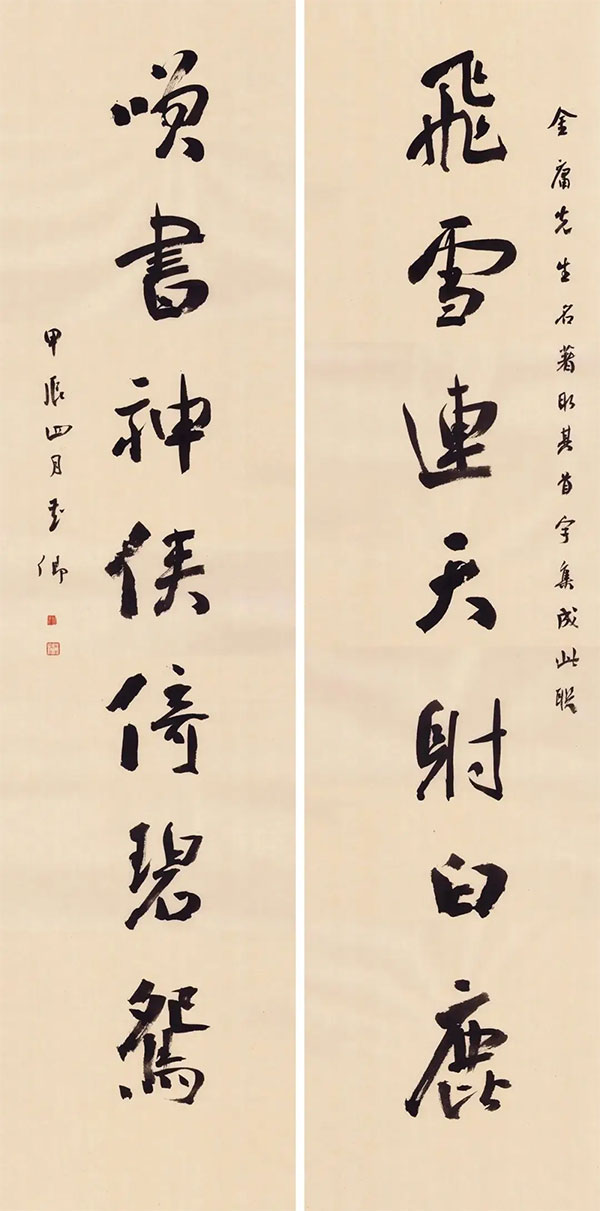 金庸先生名著取其首字集成此联
飛雪連天射白鹿
咲書神侠倚碧鴛
甲辰四月卿